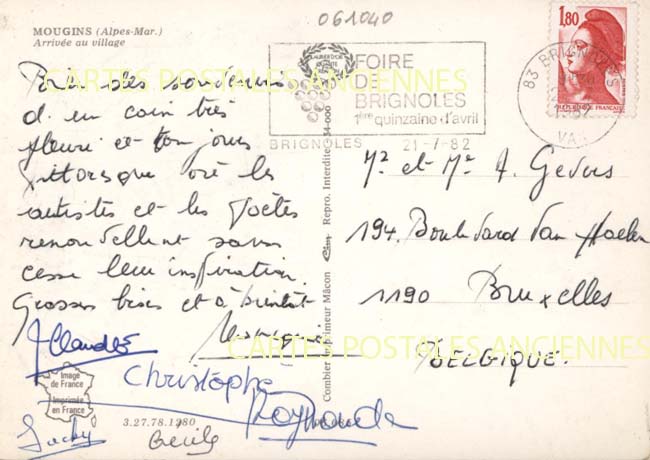 061040
MOUGINS (Alpes-Mar.)
Arrivée au village
1,80
RÉPUBLIQUE FRANÇAISE
FOIRE
DE
BRIGNOLES
1ère quinzaine d'avril
BRIGNOLES 21-7-82
83 BRIGNOLES
VAR
CARTES POSTALES ANCIENNES
des
d'un coin très
fleuri et toujours
pittoresque où les
artistes et les Poètes
renouvellent sans
cesse leur inspiration.
Grosses bises et à bientôt
Monique
J Claude
Christophe
Raymonde
Jacky
Cécile
Mr et Me A. Gevers
194. Boulevard Van Haelen
1190 Bruxelles
BELGIQUE.
CARTES POSTALES ANCIENNES
Combier Imprimeur Mâcon Repro. Interdite
Image
de France
Imprimée
en France
3.27.78.1280